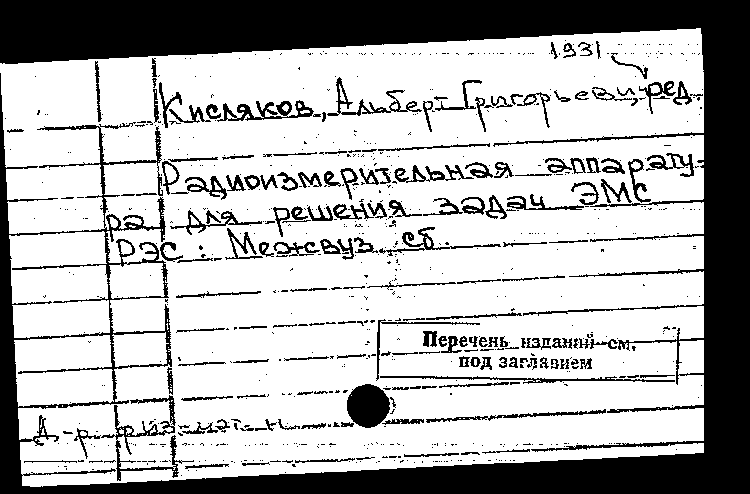 1931
Кисляков, Альберт Григорьевич, ред.
Радиоизмерительная аппарату-
ра для решения задач ЭМС
РЭС : Межвуз. сб.
Перечень изданий см.
под заглавием
Д-р физ-мат. н.